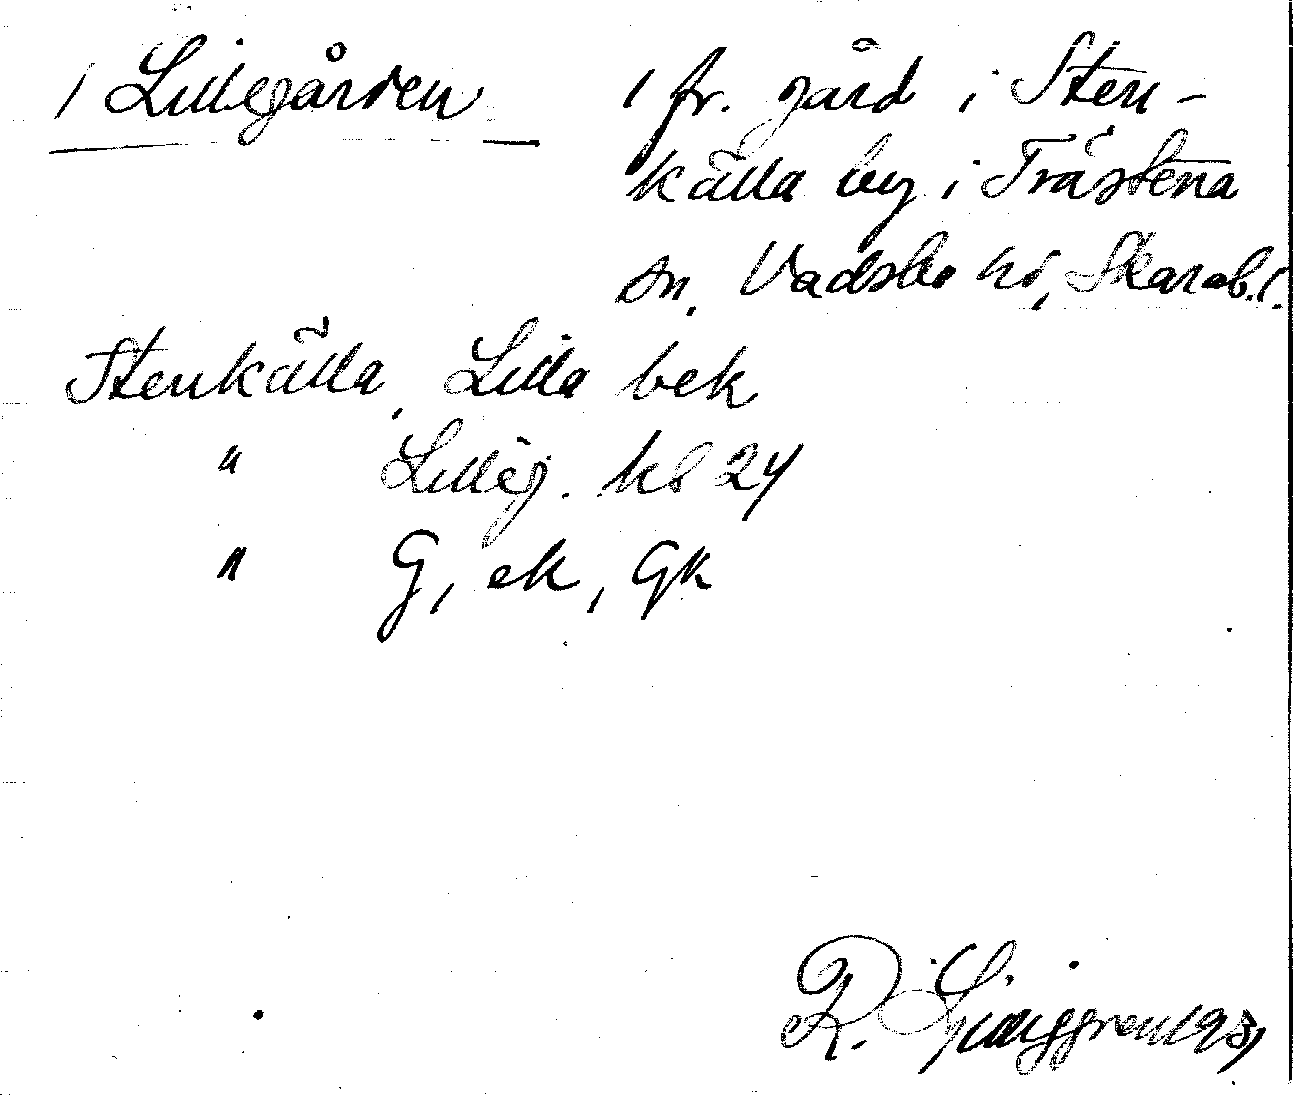 / Lillegården
/ fr. gård i Sten-
källa by i Trästena
sn. Vadsbo hd, Skarab. l.
Stenkälla, Lilla bek
" Lilleg. kl 24
" G, ek, Gk
R. Ljunggren 1931